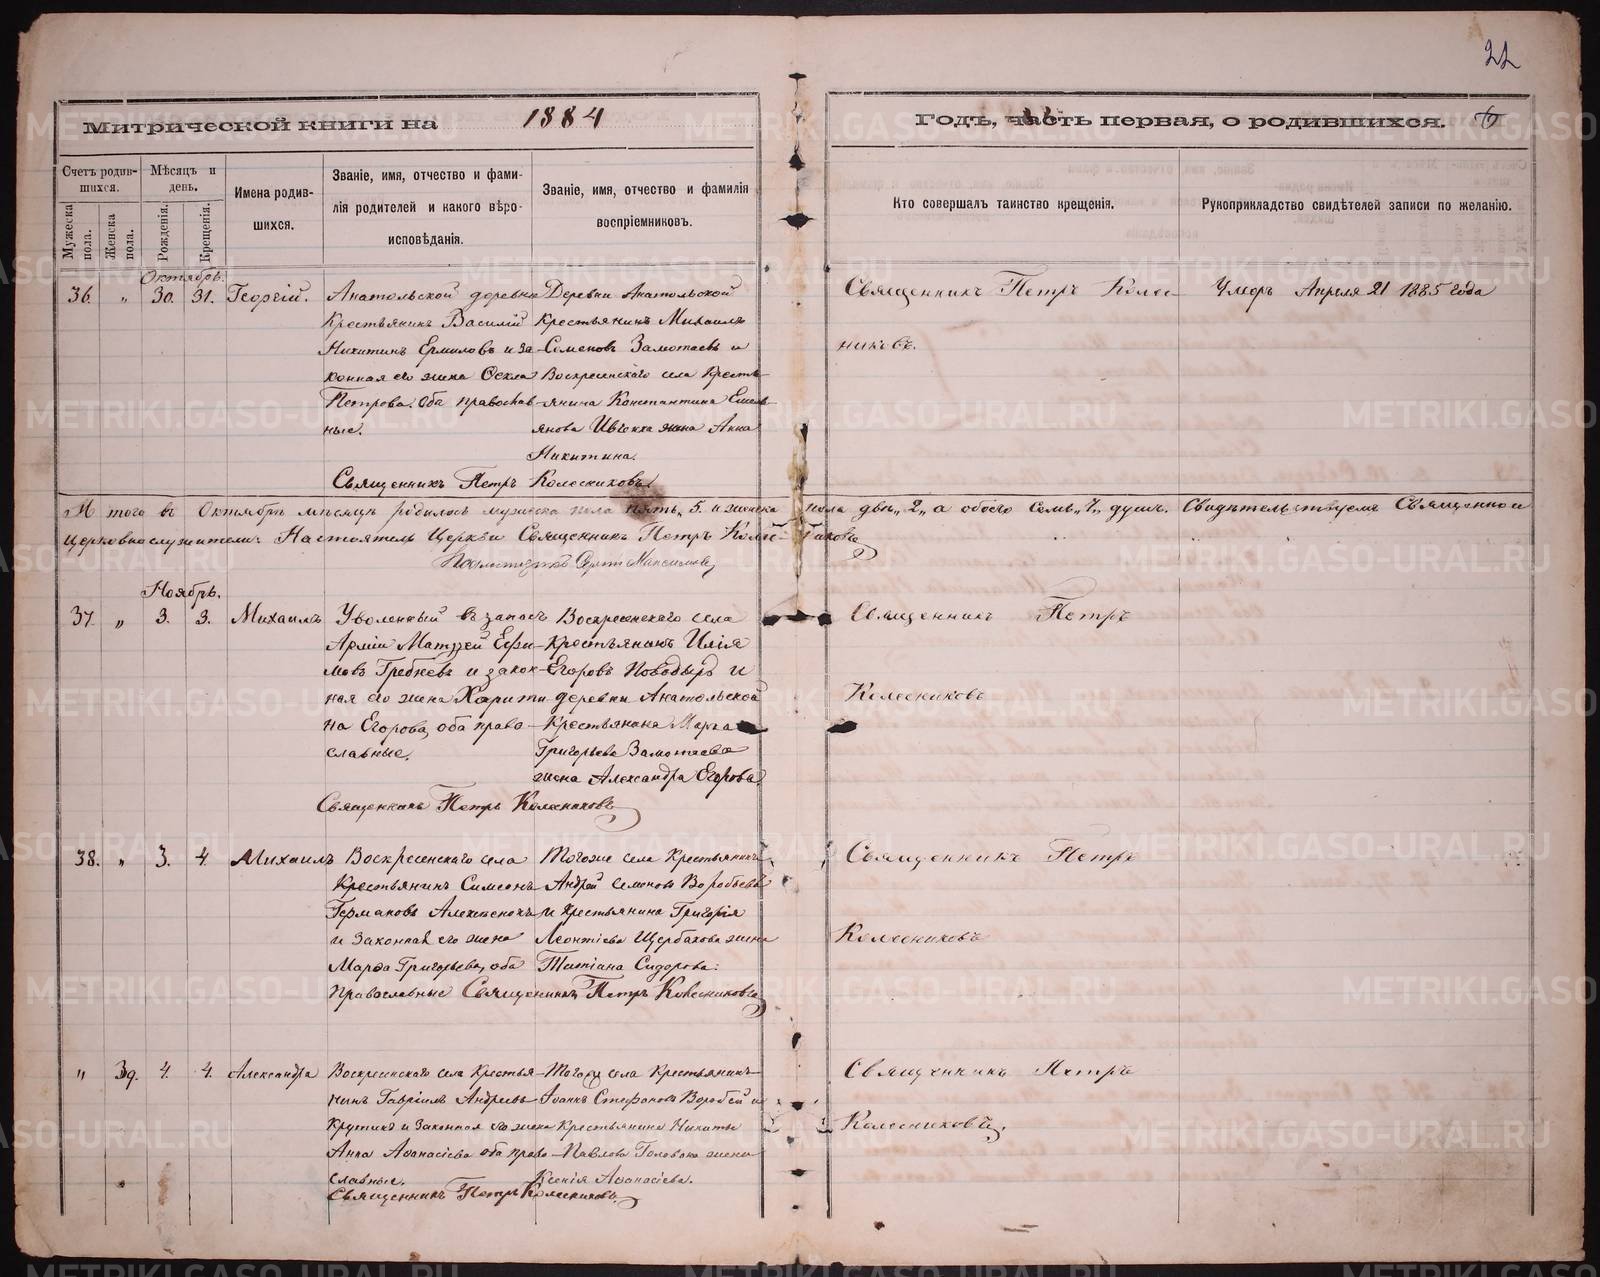 22
Митрической книги на 1884
Годъ, часть первая, о родившихся.
Счетъ родив-
шихся.
Мужеска пола.
Женска пола.
Мѣсяцъ и
день.
Рожденія.
Крещенія.
Имена родив-
шихся.
Званіе, имя, отчество и фами-
лія родителей и какого вѣро-
исповѣданія.
Званіе, имя, отчество и фамилія
воспріемниковъ.
Кто совершалъ таинство крещенія.
Рукоприкладство свидѣтелей записи по желанію.
Октябрь.
36. „ 30. 31. Георгій.
Анатольской деревни
Крестьянинъ Василій
Никитинъ Ермиловъ и за-
конная его жена
Петрова. Оба православ-
ные.
Деревни Анатольской
Крестьянинъ Михаилъ
Семеновъ Замотаевъ и
Воскресенскаго села Кресть-
янина Константина Емель-
янова жена Анна
Никитина.
Священникъ Петръ Колесниковъ
Священникъ Петръ Колес-
никовъ.
Умеръ Апреля 21 1885 года
Итого въ Октябрѣ мѣсяцѣ родилось мужеска пола пять „5„ и женска пола двѣ „2„ а обоего семь „7„ душъ. Свидѣтельствуемъ Священно и
церковнослужители: Настоятель Церкви Священникъ Петръ Колесниковъ
Псаломщикъ Максимовъ
Ноябрь.
37. „ 3. 3. Михаилъ
Уволенный въ запасъ
Арміи Матѳей Ефи-
мовъ Гребневъ и закон-
ная его жена Харити-
на Егорова, оба право-
славные.
Воскресенскаго села
Крестьянинъ Илія
Егоровъ и
деревни Анатольской
Крестьянина Марка
Григорьева Замотаева
жена Александра Егорова.
Священникъ Петръ Колесниковъ
Священникъ Петръ
Колесниковъ
38. „ 3. 4. Михаилъ
Воскресенскаго села
Крестьянинъ Симеонъ
Германовъ
и законная его жена
Марѳа Григорьева, оба
православные
Тогоже села Крестьянинъ
Андрей Семеновъ Воробьевъ
и Крестьянина Григорія
Леонтіева Щербакова жена
Татіана Сидорова.
Священникъ Петръ Колесниковъ
Священникъ Петръ
Колесниковъ
„ 39. 4. 4. Александра
Воскресенскаго села Крестья-
нинъ Гавріилъ Андреевъ
и законная его жена
Анна Аѳанасіева оба право-
славные.
Тогоже села Крестьянинъ
Іоаннъ Стефановъ Воробьевъ и
Крестьянина Никиты
Павлова жена
Ксенія Аѳанасіева.
Священникъ Петръ Колесниковъ
Священникъ Петръ
Колесниковъ.
METRIKI.GASO-URAL.RU